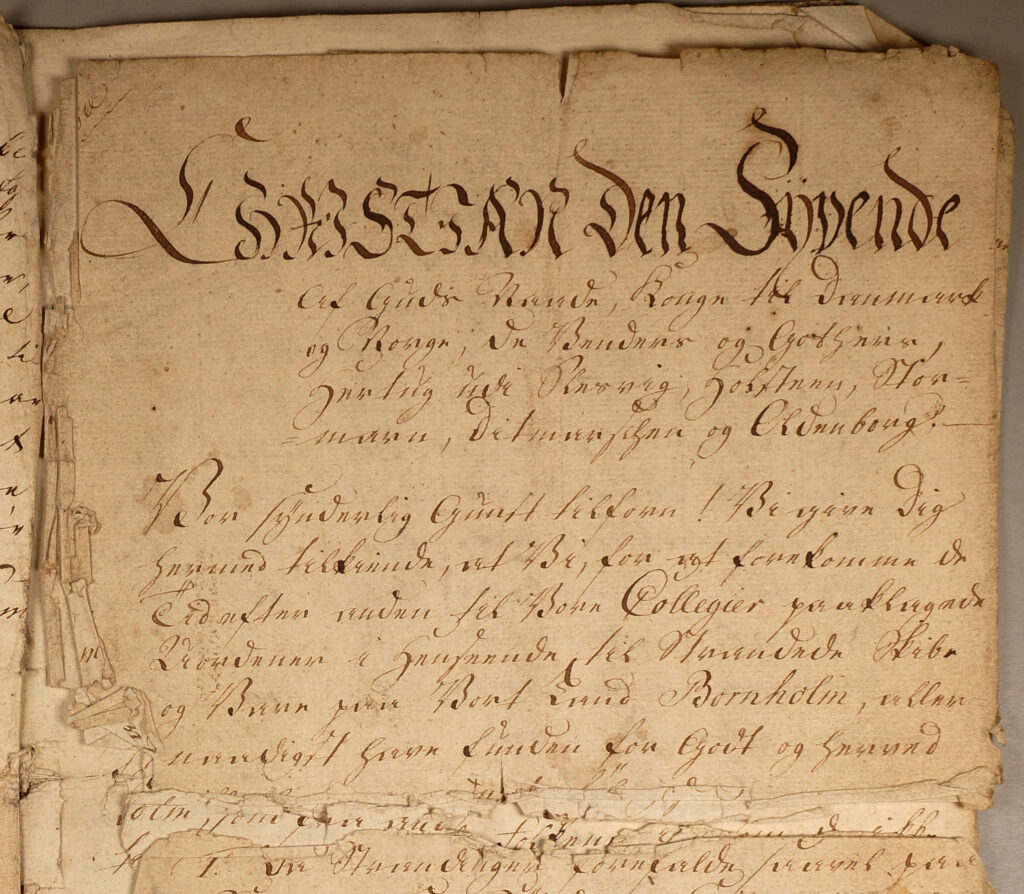 CHRISTIAN den Syvende
Af Guds Naade, Konge til Danmark
og Norge, de Venders og Gothers,
Hertug udi Slesvig, Holsteen, Stor=
=marn, Ditmarschen og Oldenborg.
Vor synderlig Gunst tilforn! Vi give Dig
hermed tilkiende, at Vi, for at forekomme de
Tid efter anden til Vore Collegier paaklagede
Uordener i Henseende til Strandede Skibe
og Vare paa Vort Land Bornholm, aller-
naadigst have funden for Godt og herved
olm, som
Folkene
1. Da Strandinger forefalde saavel paa